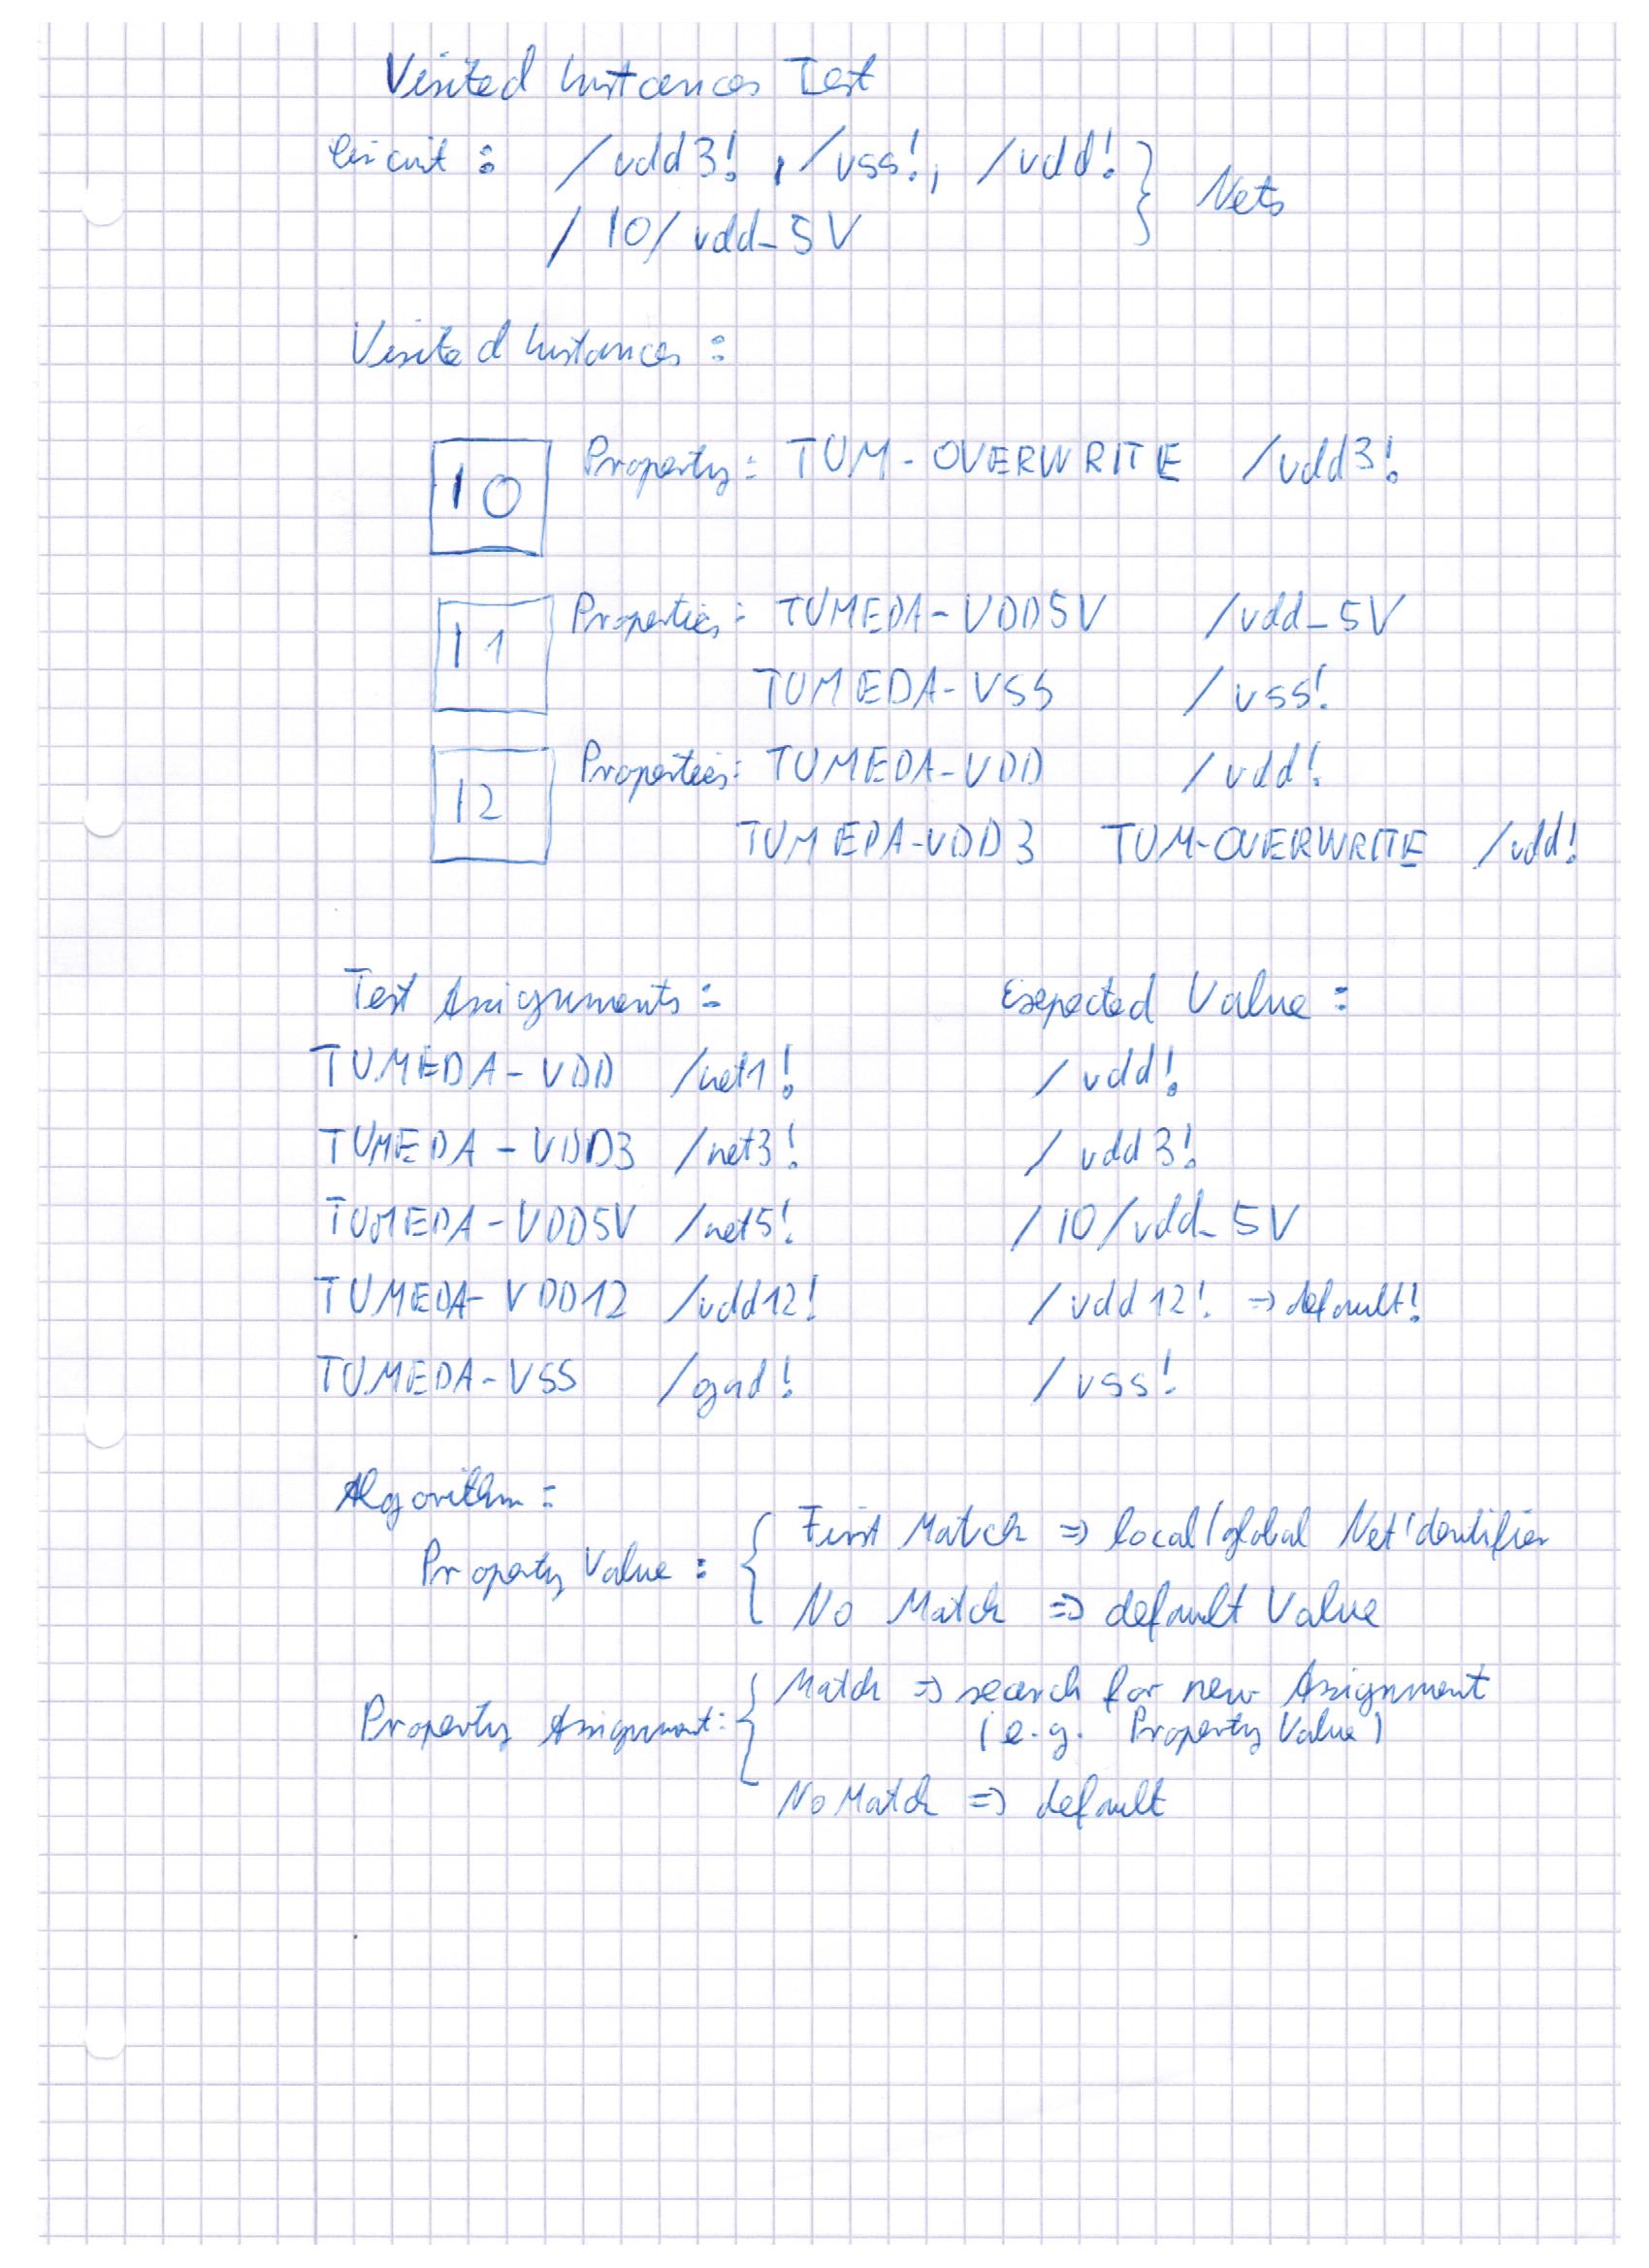 Visited Instances Test
Circuit : /vdd3! , /vss!, /vdd! } Nets
/I0/vdd_5V
Visited Instances :
I0 Property: TUM-OVERWRITE /vdd3!
I1 Properties: TUMEDA-VDD5V /vdd_5V
TUMEDA-VSS /vss!
I2 Properties: TUMEDA-VDD /vdd!
TUMEDA-VDD3 TUM-OVERWRITE /vdd!
Test Assignments : Expected Value :
TUMEDA-VDD /net1! /vdd!
TUMEDA-VDD3 /net3! /vdd3!
TUMEDA-VDD5V /net5! /I0/vdd_5V
TUMEDA-VDD12 /vdd12! /vdd12! => default!
TUMEDA-VSS /gnd! /vss!
Algorithm :
Property Value : { First Match => local/global Net Identifier
No Match => default Value
Property Assignment: { Match => search for new Assignment
(e.g. Property Value)
No Match => default